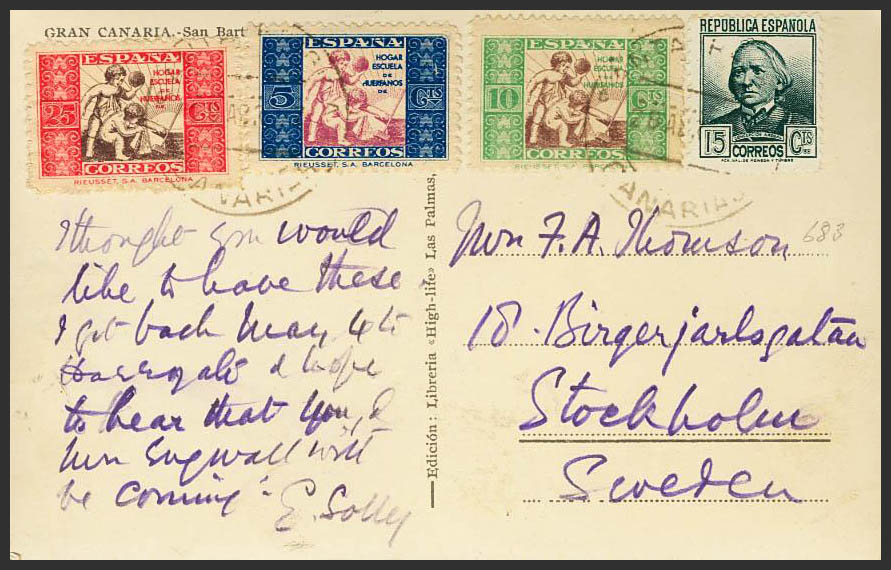 GRAN CANARIA.-San Bart
ESPAÑA
HOGAR
ESCUELA
DE
HUERFANOS
DE
25 CTS
CORREOS
RIEUSSET, S.A. BARCELONA
ESPAÑA
HOGAR
ESCUELA
DE
HUERFANOS
DE
5 CTS
CORREOS
RIEUSSET, S.A. BARCELONA
ESPAÑA
HOGAR
ESCUELA
HUERFANOS
10 CTS
CORREOS
RIEUSSET, S.A. BARCELONA
REPÚBLICA ESPAÑOLA
15 CTS
CORREOS
CANARIAS
I thought you would
like to have these
I get back May 4 to
Harrogate & hope
to hear that you &
Mrs Engwall will
be coming.
E. Solly
Edición: Librería «High-life» Las Palmas,
683
Mrs F. A. Thomson
18. Birgerjarlsgatan
Stockholm
Sweden